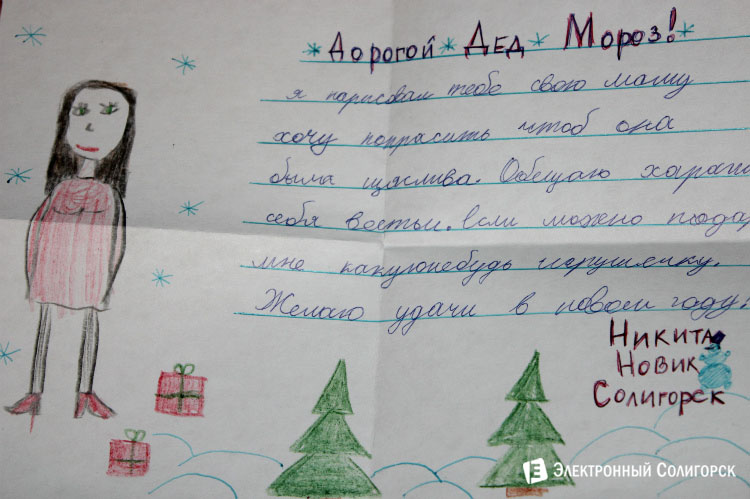 * Дорогой * Дед * Мороз!
я нарисовал тебе свою маму
хочу попрасить чтоб она
была щаслива. Обещаю хараш
себя вости. Если можно пода
мне какуюнебудь игрушечку.
Желаю удачи в новом году.
Никита
Новик
Солигорск
Электронный Солигорск